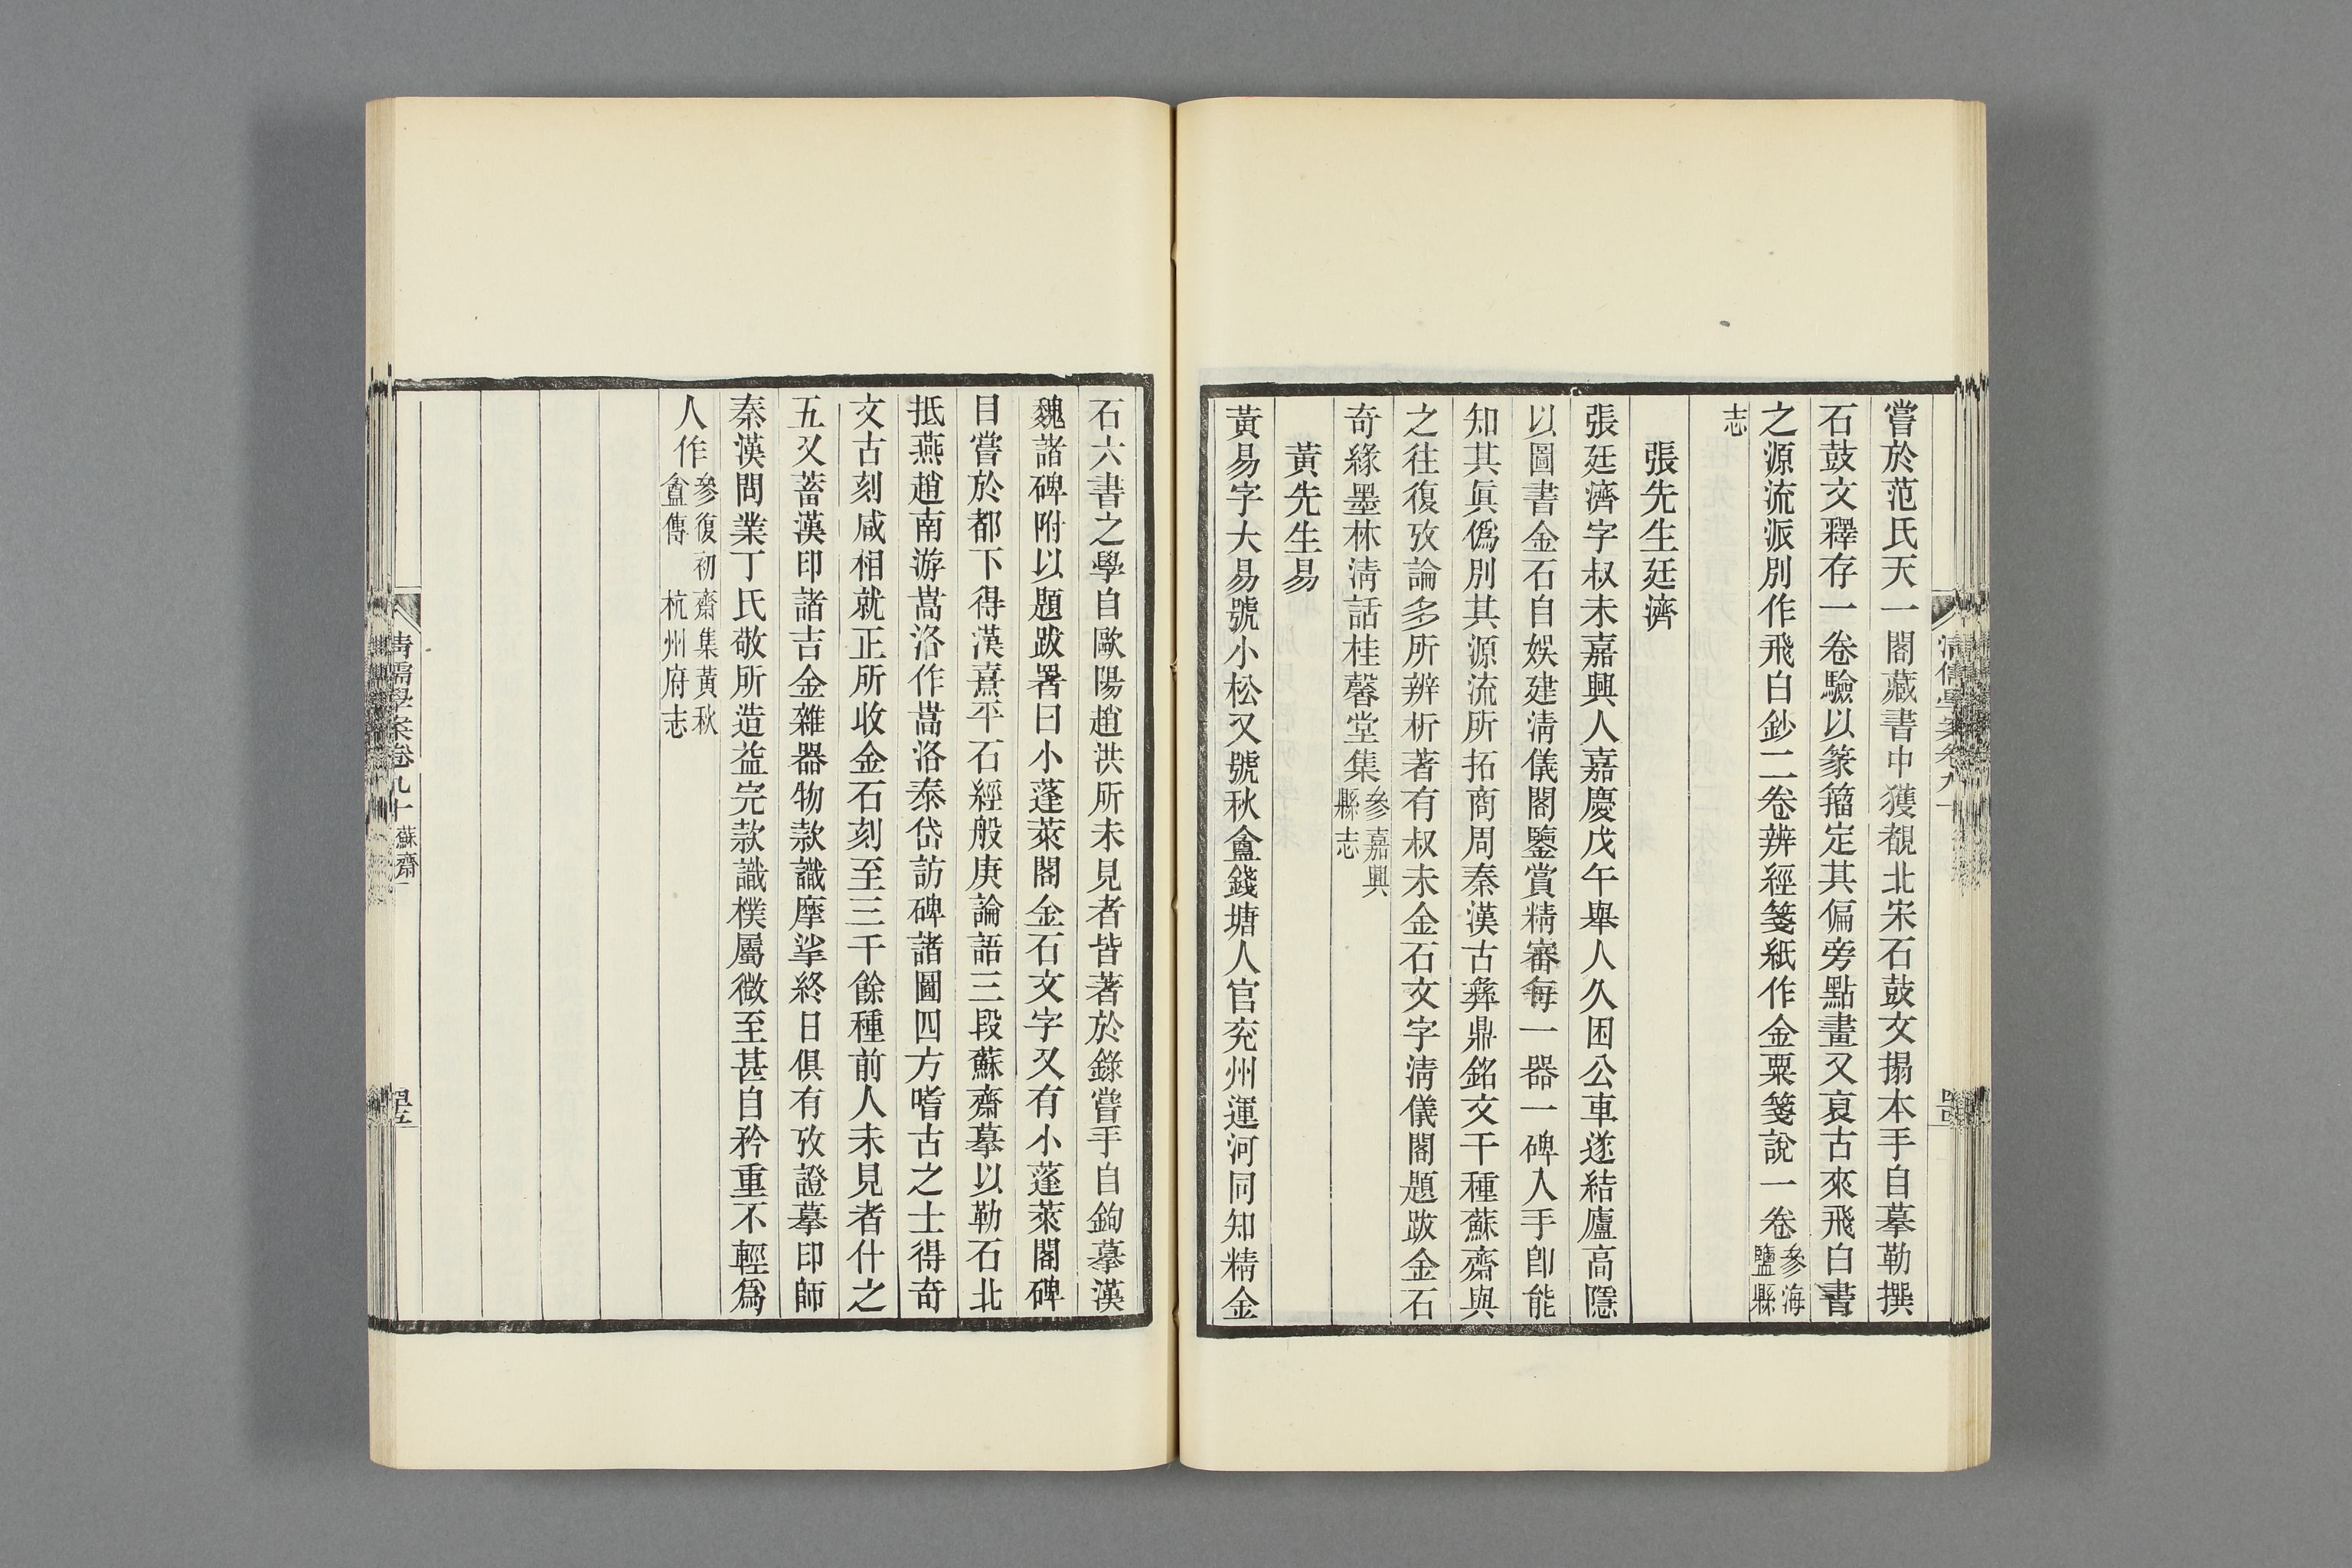 嘗於范氏天一閣藏書中獲覩北宋石鼓文搨本手自摹勒撰
石鼓文釋存一卷驗以篆籀定其偏旁點畫又裒古來飛白書
之源流派別作飛白鈔二卷辨經箋紙作金粟箋說一卷參海鹽縣
志
張先生廷濟
張廷濟字叔未嘉興人嘉慶戊午舉人久困公車遂結廬高隱
以圖書金石自娛建淸儀閣鑒賞精審每一器一碑入手卽能
知其眞僞別其源流所拓商周秦漢古彝鼎銘文千種蘇齋與
之往復攷論多所辨析著有叔未金石文字淸儀閣題跋金石
奇緣墨林淸話桂馨堂集參嘉興縣志
黃先生易
黃易字大易號小松又號秋盦錢塘人官兗州運河同知精金
石六書之學自歐陽趙洪所未見者皆著於錄嘗手自鉤摹漢
魏諸碑附以題跋署曰小蓬萊閣金石文字又有小蓬萊閣碑
目嘗於都下得漢熹平石經般庚論語三段蘇齋摹以勒石北
抵燕趙南游嵩洛作嵩洛泰岱訪碑諸圖四方嗜古之士得奇
文古刻咸相就正所收金石刻至三千餘種前人未見者什之
五又蓄漢印諸吉金雜器物款識摩挲終日俱有攷證摹印師
秦漢問業丁氏敬所造益完款識樸屬微至甚自矜重不輕爲
人作參復初齋集黃秋盦傳杭州府志
淸儒學案卷九十 蘇齋